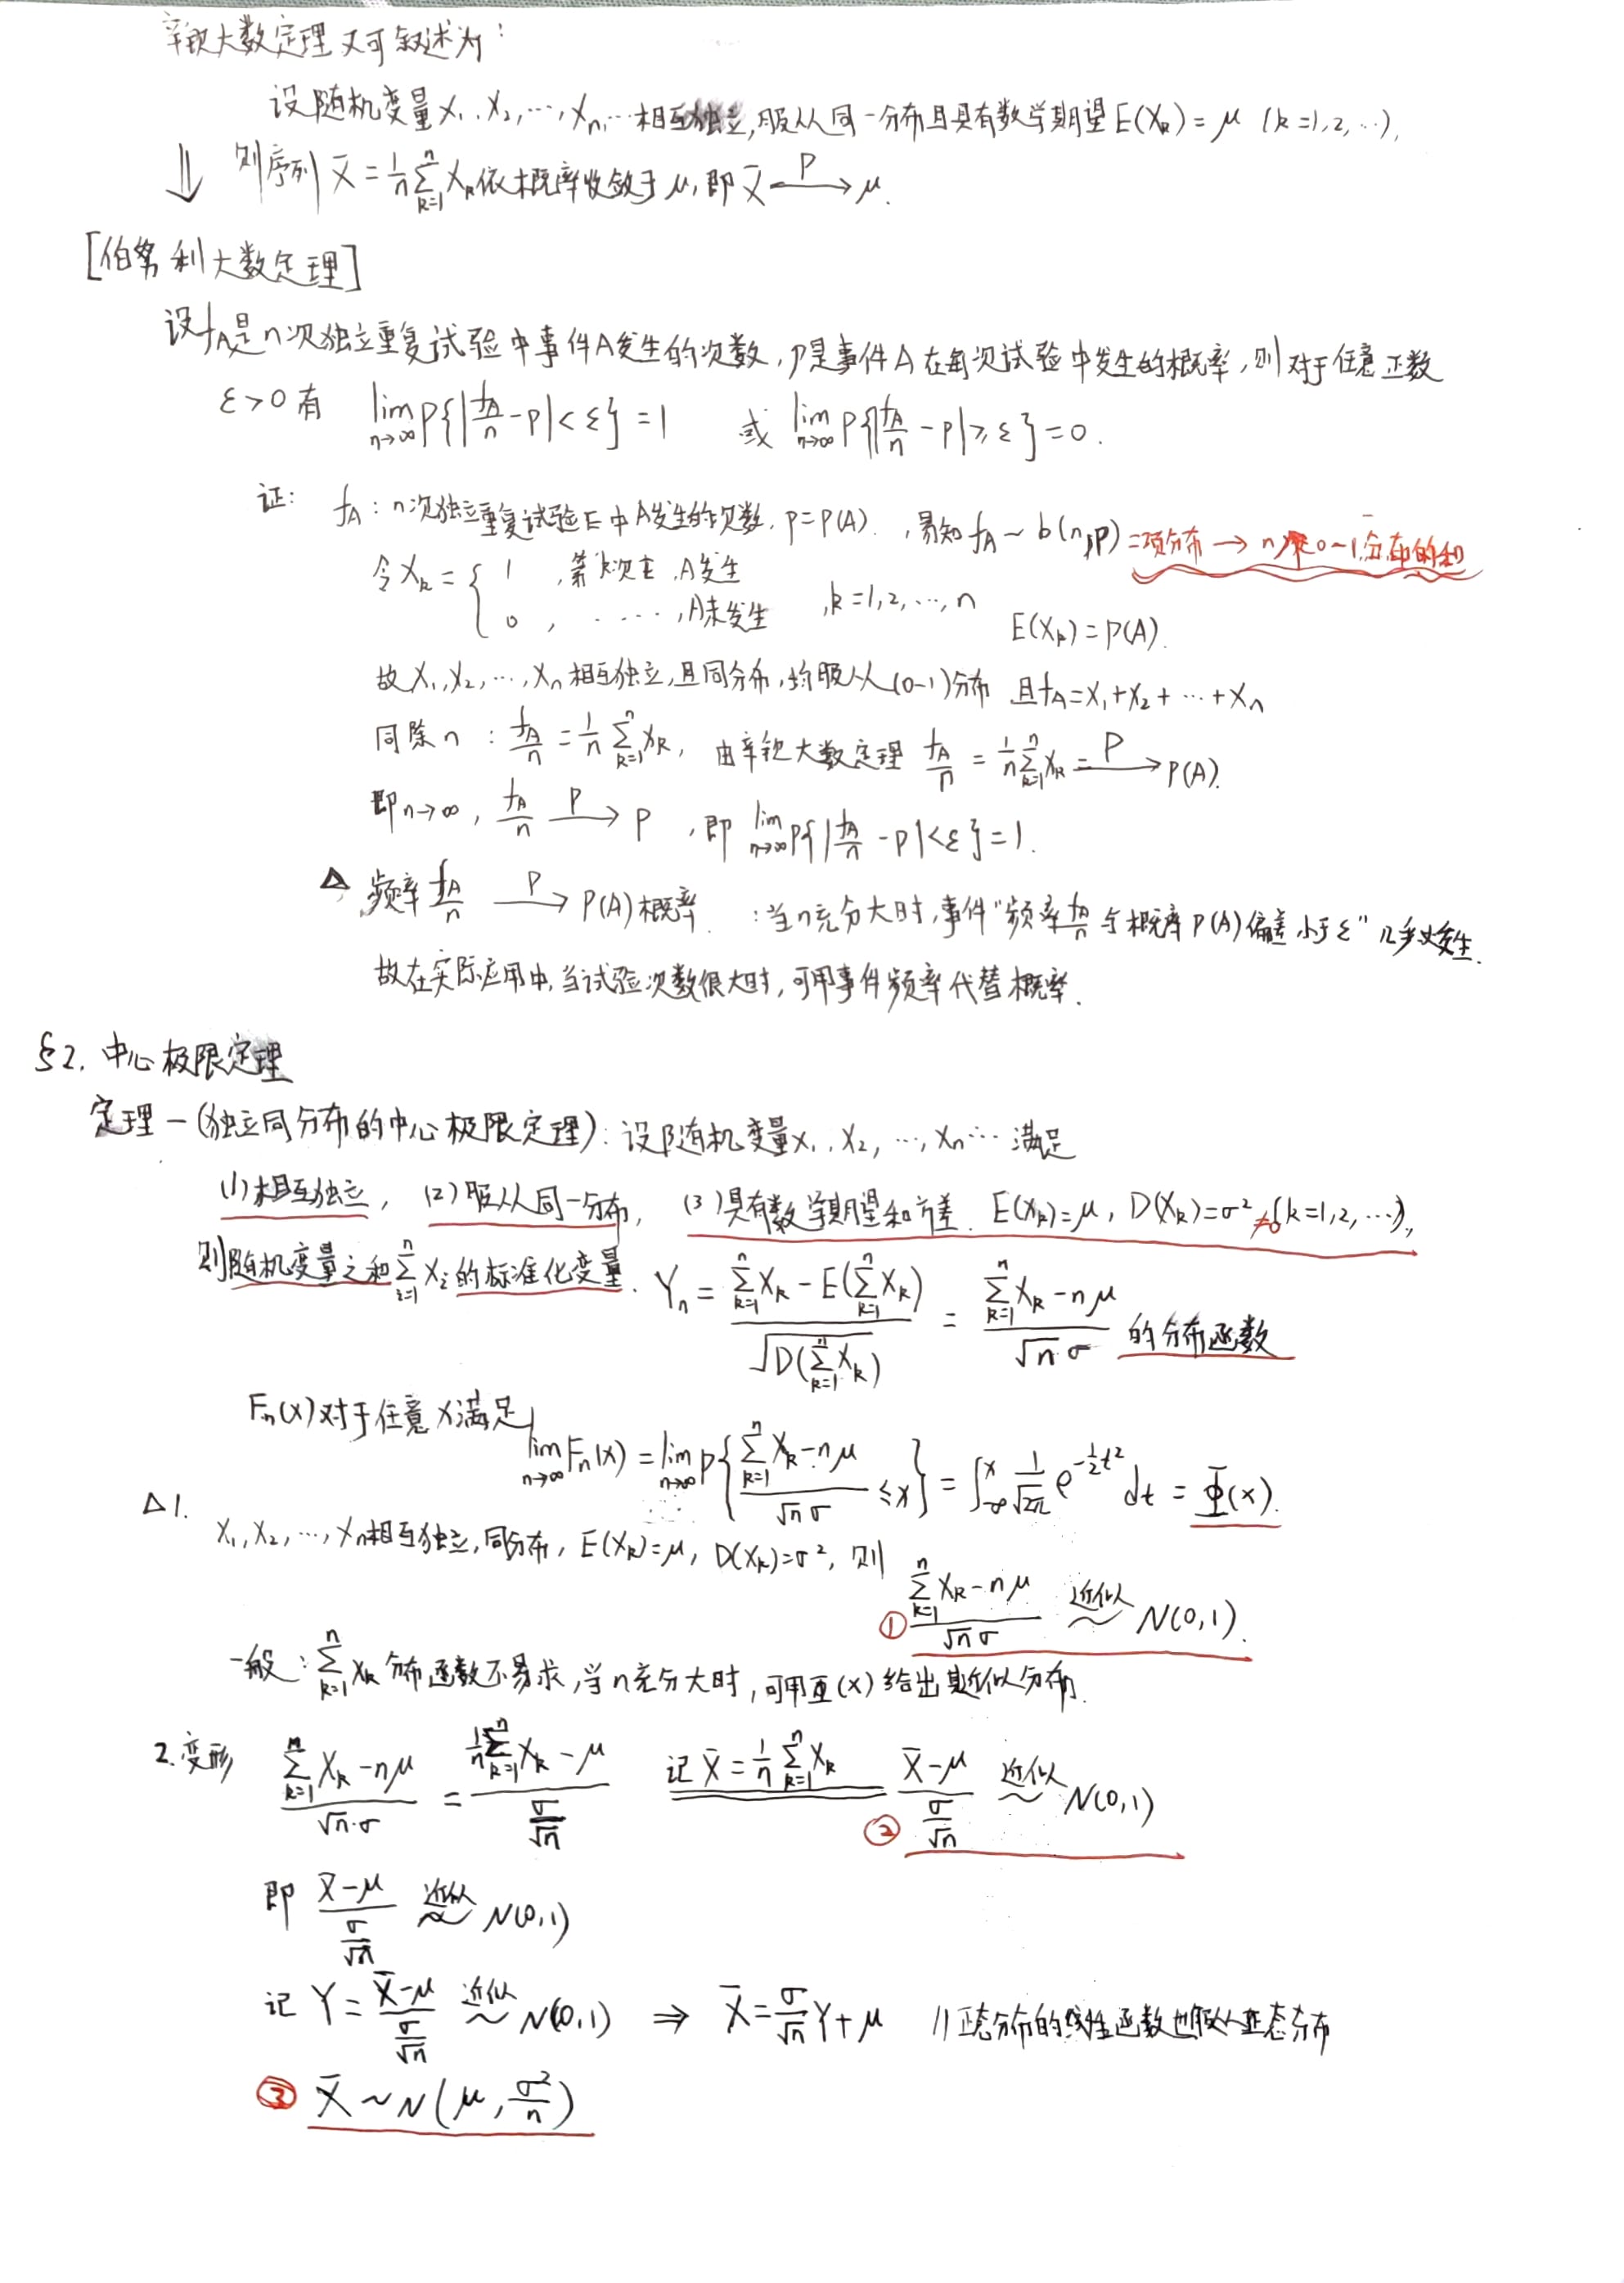 辛钦大数定理又可叙述为:
设随机变量X₁,X₂,…,Xₙ,…相互独立,服从同一分布且具有数学期望E(Xₖ)=μ (k=1,2,…),
⇓ 则序列 X̄=1/n ∑ₖ₌₁ⁿ Xₖ依概率收敛于μ,即X̄ —P→ μ.
[伯努利大数定理]
设f_A是n次独立重复试验中事件A发生的次数,p是事件A在每次试验中发生的概率,则对于任意正数
ε>0有 lim_{n→∞} P{|f_A/n - p|<ε}=1 或 lim_{n→∞} P{|f_A/n - p|≥ε}=0.
证: f_A:n次独立重复试验E中A发生的次数, p=P(A). ,易知f_A~b(n,p) 二项分布→n次0-1分布的和
令Xₖ={ 1 ,第k次在,A发生
0 , ……,A未发生 ,k=1,2,…,n E(Xₖ)=P(A).
故X₁,X₂,…,Xₙ相互独立,且同分布,均服从(0-1)分布 且f_A=X₁+X₂+…+Xₙ
同除n : f_A/n = 1/n ∑ₖ₌₁ⁿ Xₖ, 由辛钦大数定理 f_A/n = 1/n ∑ₖ₌₁ⁿ Xₖ —P→ P(A).
即n→∞, f_A/n —P→ p ,即 lim_{n→∞} P{|f_A/n - p|<ε}=1.
△ 频率 f_A/n —P→ P(A)概率. :当n充分大时,事件"频率f_A/n与概率P(A)偏差小于ε"几乎必发生.
故在实际应用中,当试验次数很大时,可用事件频率代替概率.
§2. 中心极限定理
定理一(独立同分布的中心极限定理):设随机变量X₁,X₂,…,Xₙ…满足
(1)相互独立, (2)服从同一分布, (3)具有数学期望和方差. E(Xₖ)=μ, D(Xₖ)=σ²≠0(k=1,2,…),
则随机变量之和∑ᵢ₌₁ⁿ Xᵢ的标准化变量. Yₙ = (∑ₖ₌₁ⁿ Xₖ - E(∑ₖ₌₁ⁿ Xₖ))/√D(∑ₖ₌₁ⁿ Xₖ) = (∑ₖ₌₁ⁿ Xₖ - nμ)/(√n σ) 的分布函数
Fₙ(x)对于任意x满足
lim_{n→∞} Fₙ(x) = lim_{n→∞} P{(∑ₖ₌₁ⁿ Xₖ - nμ)/(√n σ) ≤x} = ∫_{-∞}^x 1/√2π e^{-½t²} dt = Φ(x).
△1. X₁,X₂,…,Xₙ相互独立,同分布, E(Xₖ)=μ, D(Xₖ)=σ², 则
① (∑ₖ₌₁ⁿ Xₖ - nμ)/(√n σ) 近似~ N(0,1).
一般:∑ₖ₌₁ⁿ Xₖ 分布函数不易求,当n充分大时,可用Φ(x)给出其近似分布.
2.变形 (∑ₖ₌₁ⁿ Xₖ - nμ)/(√n·σ) = (1/n ∑ₖ₌₁ⁿ Xₖ - μ)/(σ/√n) 记X̄=1/n ∑ₖ₌₁ⁿ Xₖ ② (X̄-μ)/(σ/√n) 近似~ N(0,1)
即 (X̄-μ)/(σ/√n) 近似~ N(0,1)
记 Y=(X̄-μ)/(σ/√n) 近似~ N(0,1) ⇒ X̄=σ/√n Y+μ //正态分布的线性函数也服从正态分布
③ X̄~N(μ,σ²/n)